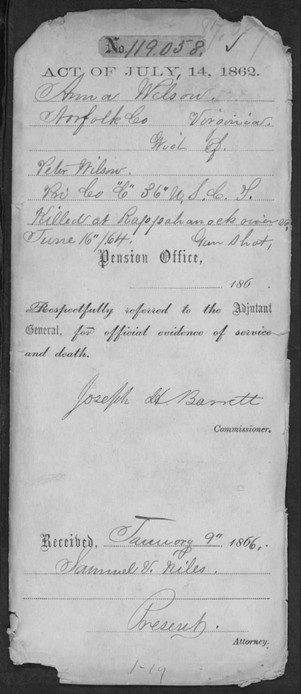 No. 119.058.
ACT OF JULY, 14, 1862.
Anna Wilson.
Norfolk Co Virginia.
Wid of
Peter Wilson.
Pri Co "E" 36" U. S. C. T.
Killed at Rappahanock river Va
June 16"/64. Gun shot,
Pension Office,
186 .
Respectfully referred to the Adjutant
General, for official evidence of service
and death.
Joseph H Barrett
Commissioner.
Received, January 9" 1866.
Samuel V. Niles.
Present.
Attorney.